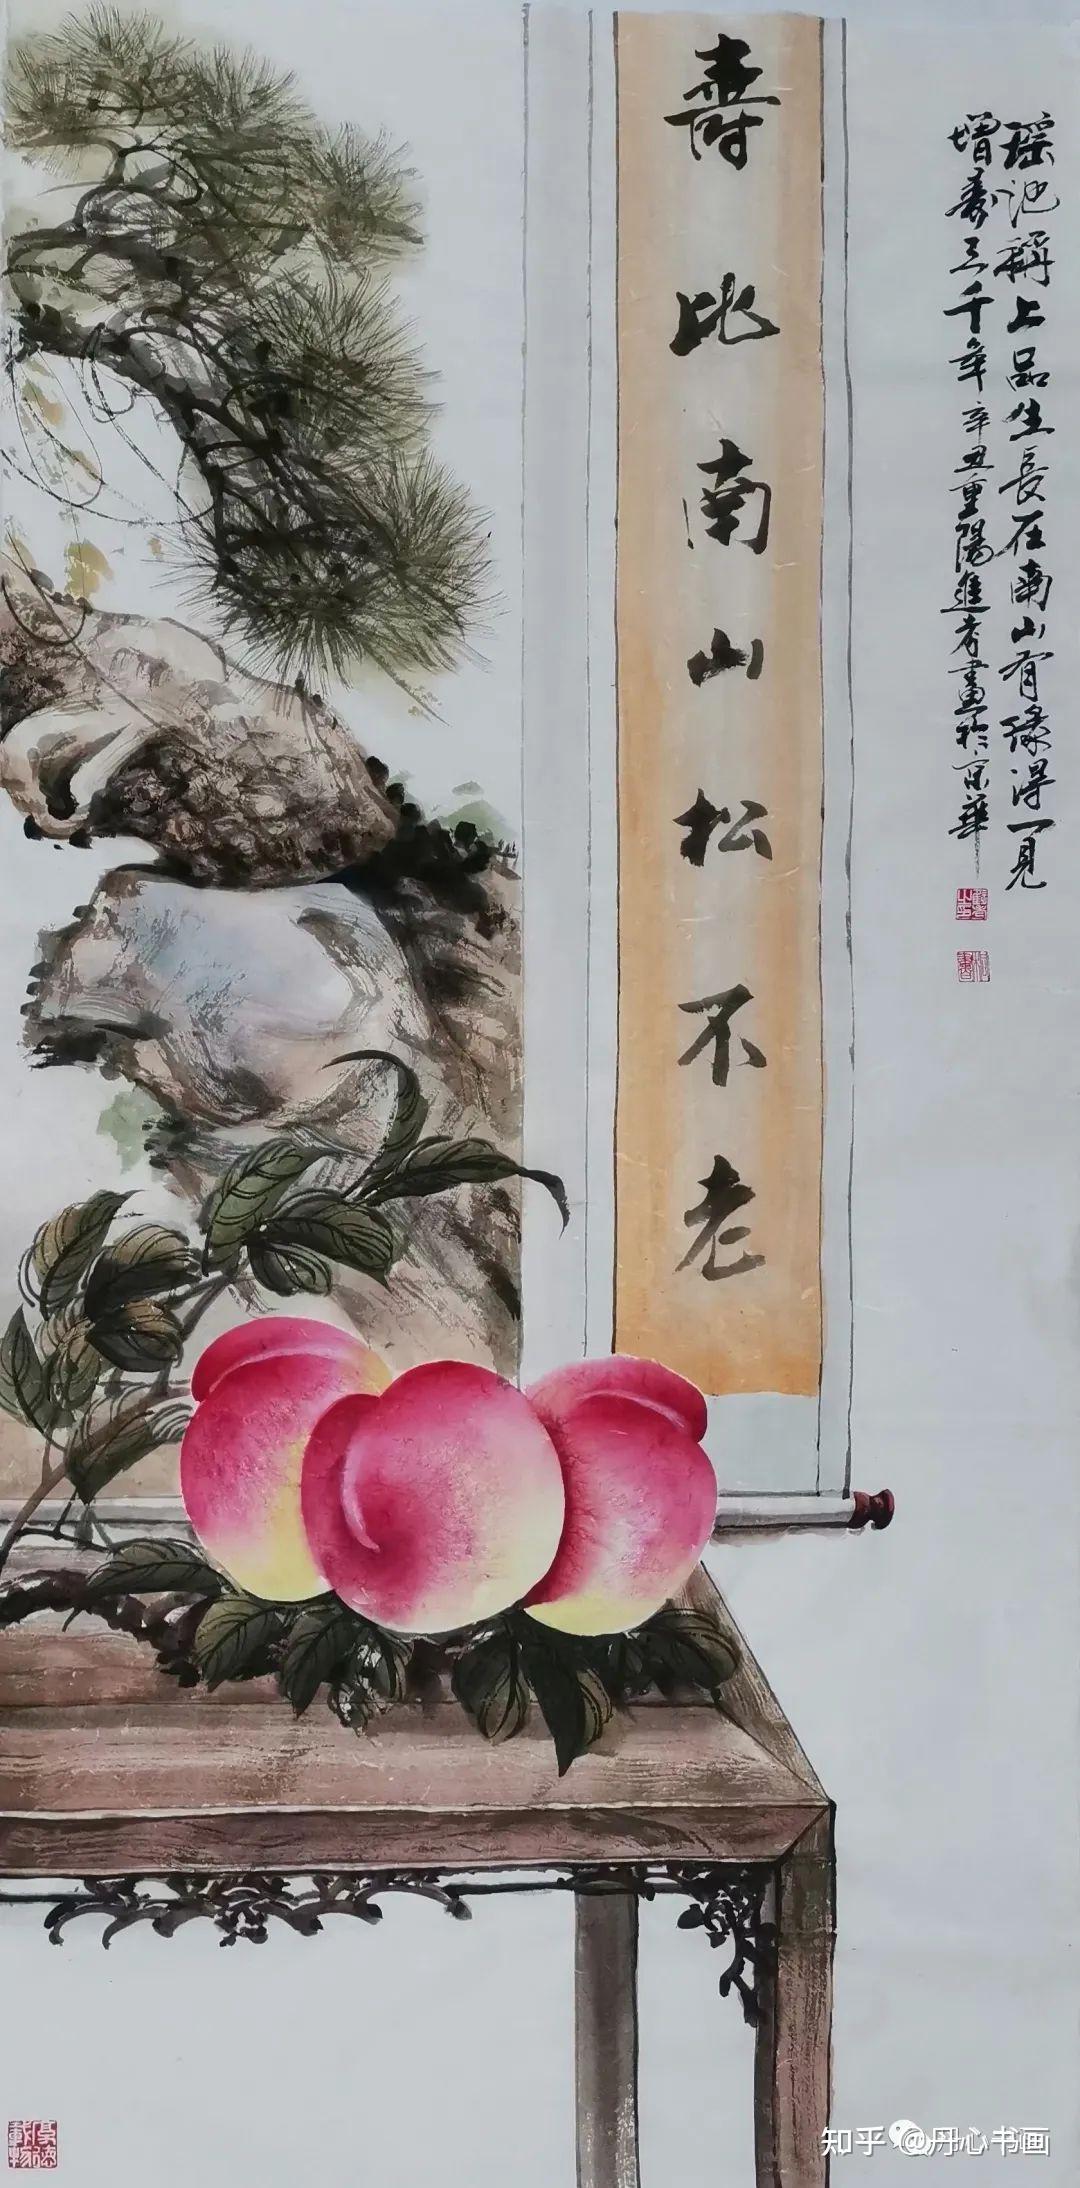 瑶池稱上品生長在南山有緣得一見
增壽三千年辛丑重陽進孝畫於京華
壽比南山松不老
厚德載物
知乎 @丹心书画